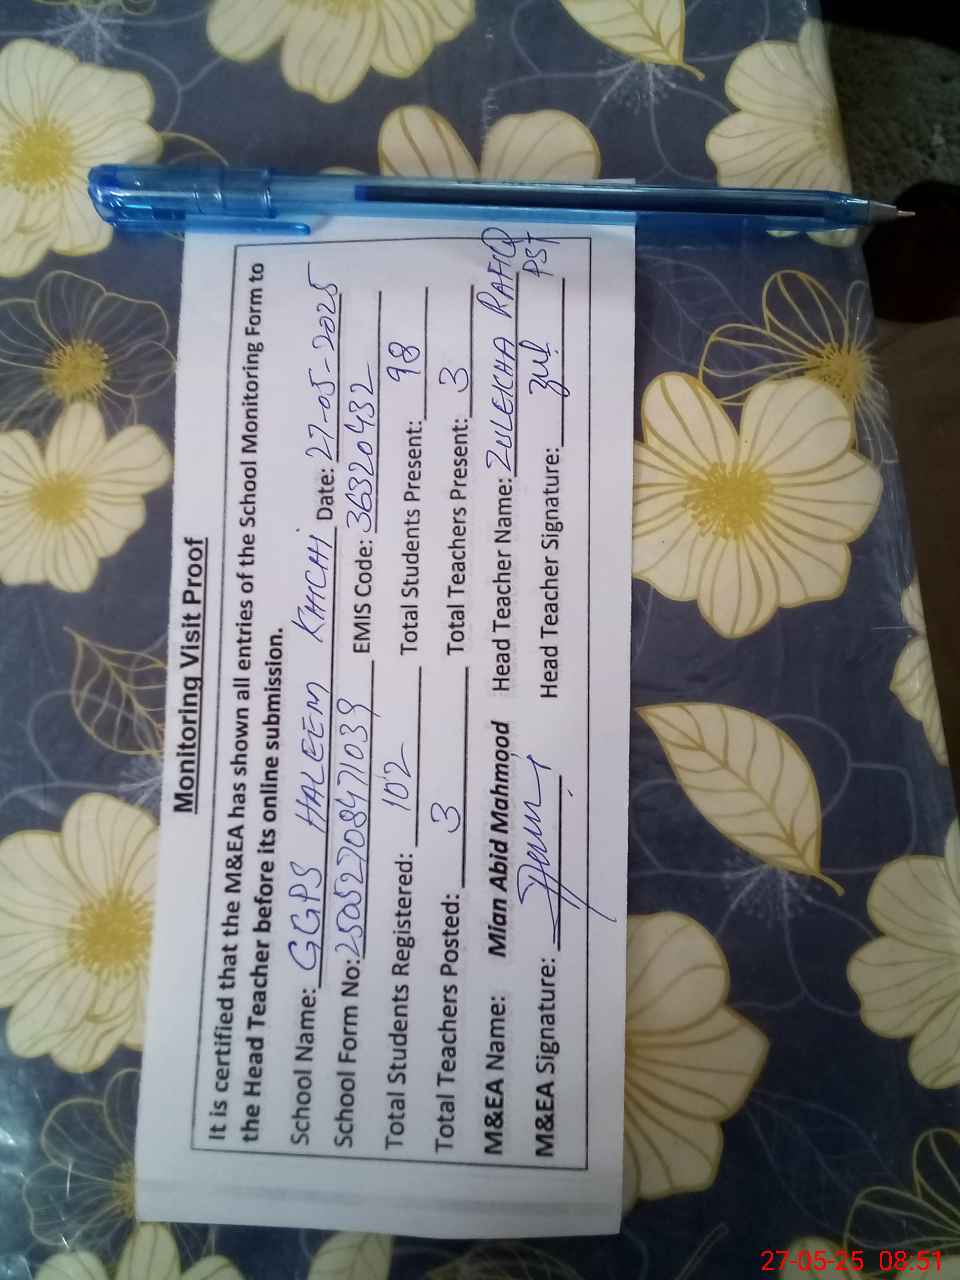 Monitoring Visit Proof
It is certified that the M&EA has shown all entries of the School Monitoring Form to
the Head Teacher before its online submission.
School Name: GGPS HALEEM KHICHI Date: 27-05-2025
School Form No: 25052708471039 EMIS Code: 36320432
Total Students Registered: 102 Total Students Present: 98
Total Teachers Posted: 3 Total Teachers Present: 3
M&EA Name: Mian Abid Mahmood Head Teacher Name: ZULEKHA RAFIQ
PST
M&EA Signature: Head Teacher Signature: zul
27-05-25 08:51